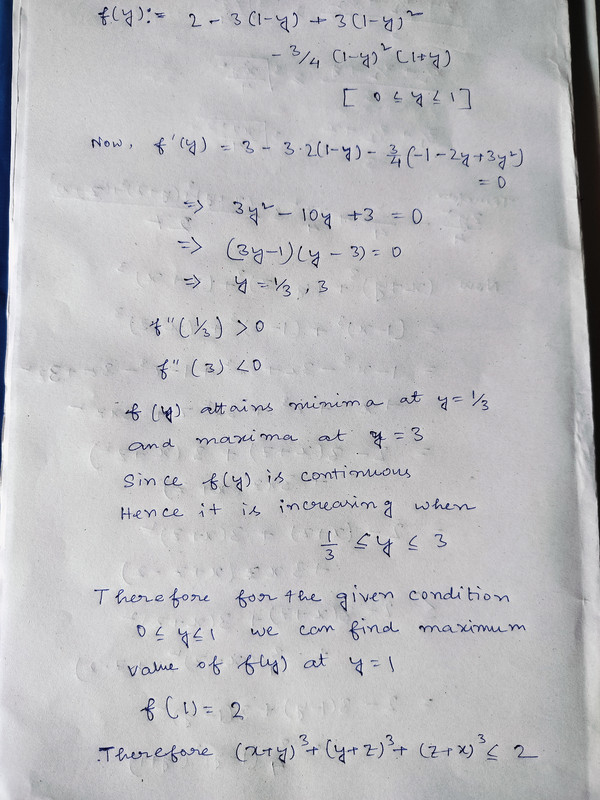 f(y):= 2 - 3(1-y) + 3(1-y)²
- 3/4 (1-y)² (1+y)
[ 0 ≤ y ≤ 1 ]
Now, f'(y) = 3 - 3·2(1-y) - 3/4(-1-2y+3y²)
= 0
=> 3y² - 10y + 3 = 0
=> (3y-1)(y-3) = 0
=> y = 1/3, 3
f''(1/3) > 0
f''(3) < 0
f(y) attains minima at y = 1/3
and maxima at y = 3
Since f(y) is continuous
Hence it is increasing when
1/3 ≤ y ≤ 3
Therefore for the given condition
0 ≤ y ≤ 1 we can find maximum
value of f(y) at y = 1
f(1) = 2
.Therefore (x+y)³+(y+z)³+(z+x)³ ≤ 2